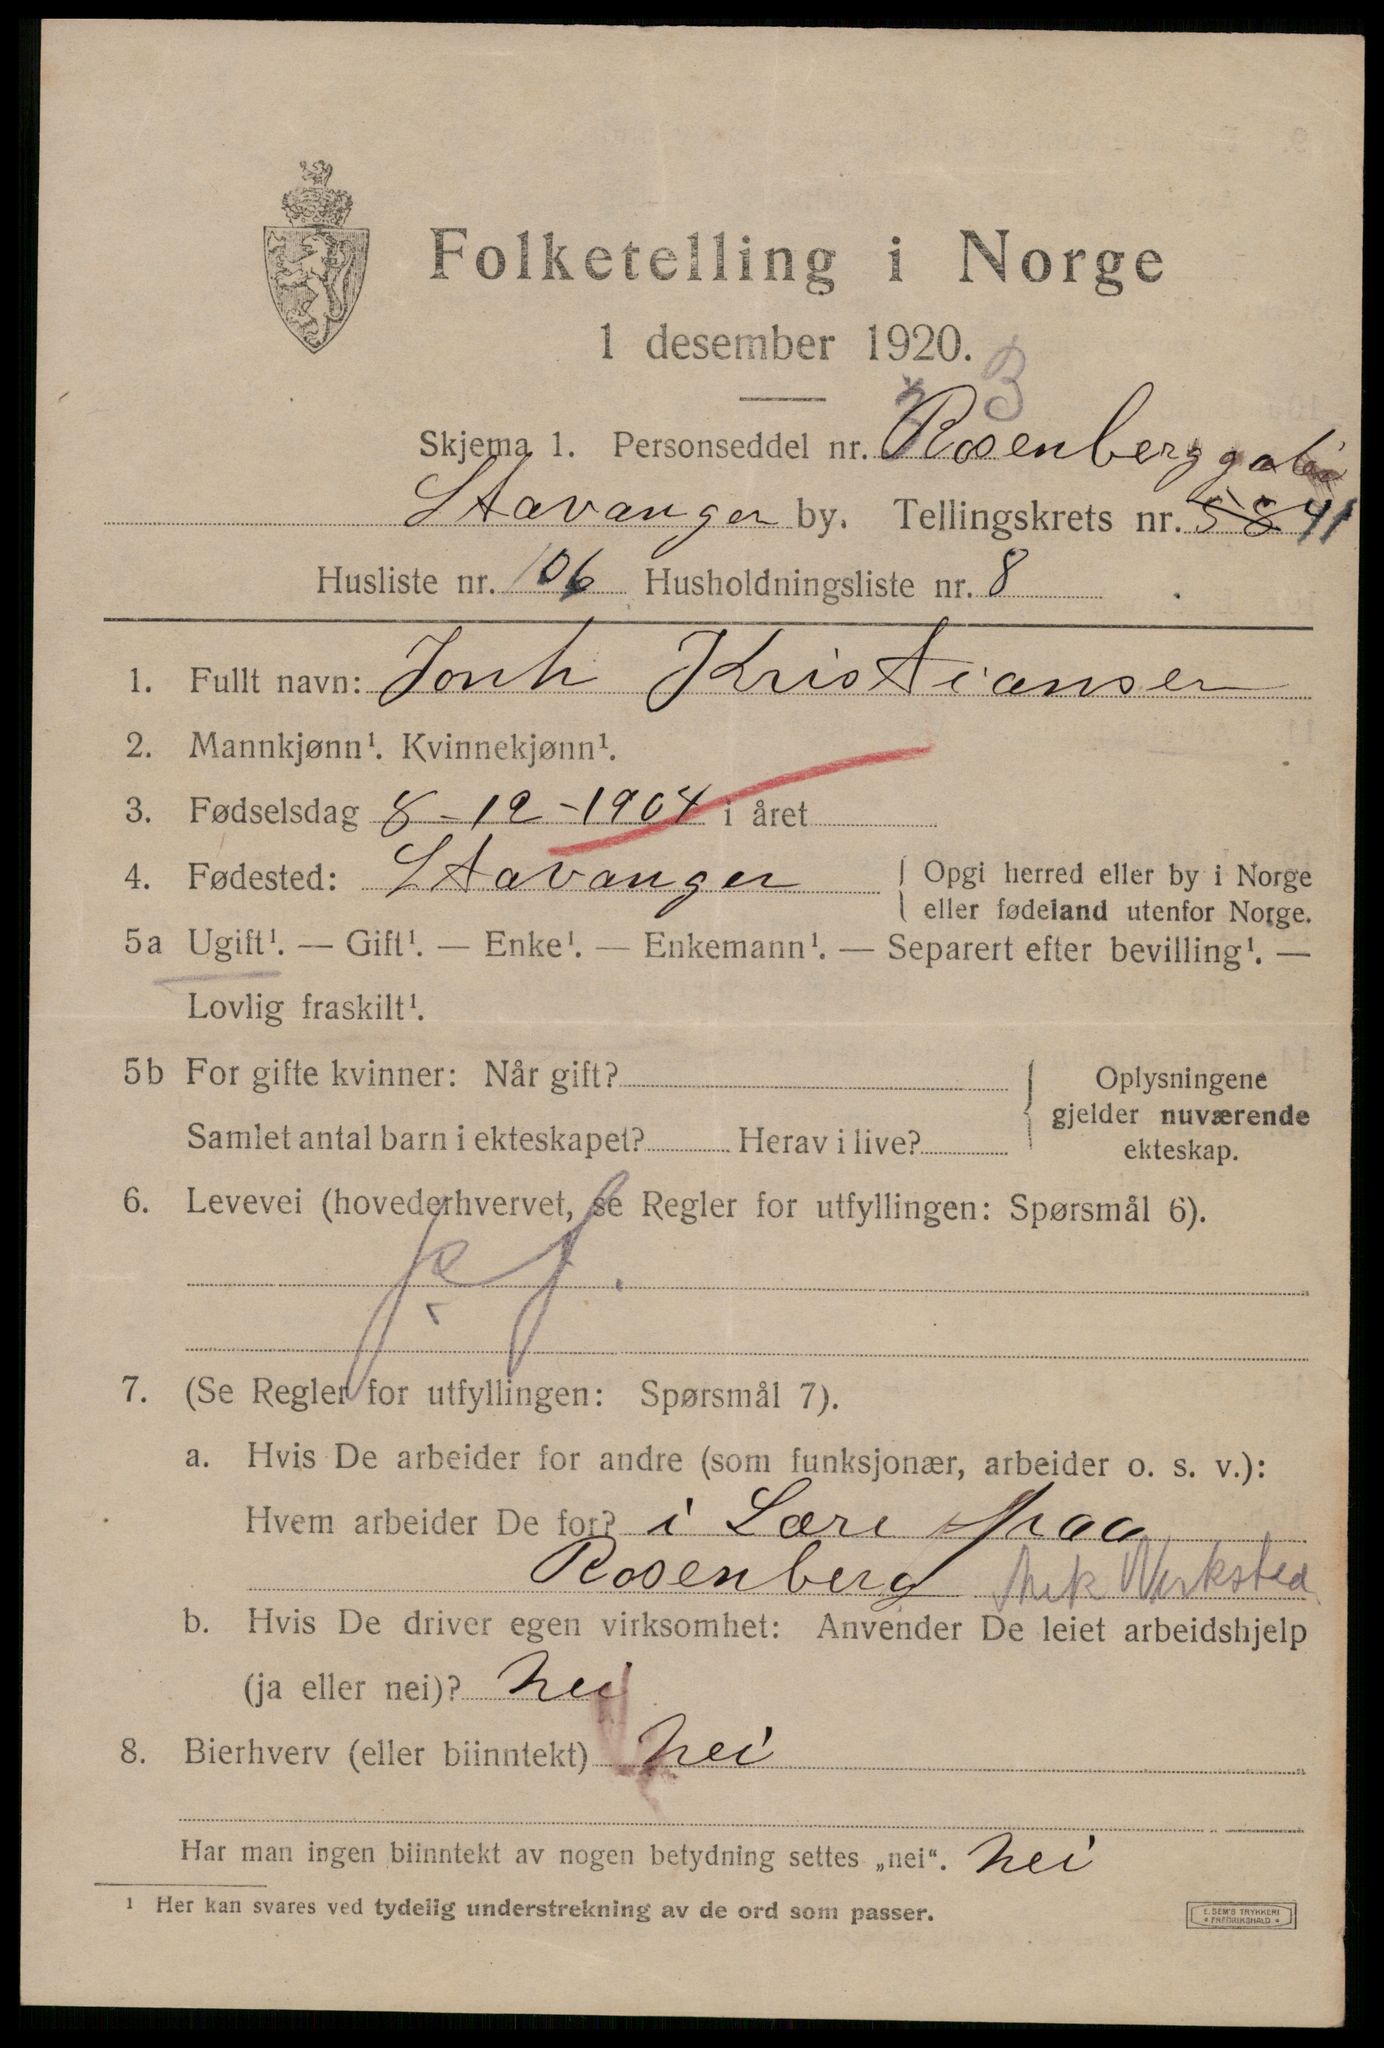 Folketelling i Norge
1 desember 1920.
3
Skjema 1. Personseddel nr. Rosenberggaten
Stavanger by. Tellingskrets nr. 58 41
Husliste nr. 106 Husholdningsliste nr. 8
1. Fullt navn: Jonh Kristiansen
2. Mannkjønn¹. Kvinnekjønn¹.
3. Fødselsdag 8-12-1904 i året
4. Fødested: Stavanger { Opgi herred eller by i Norge
eller fødeland utenfor Norge.
5a Ugift¹. — Gift¹. — Enke¹. — Enkemann¹. — Separert efter bevilling¹. —
Lovlig fraskilt¹.
5b For gifte kvinner: Når gift?
Samlet antal barn i ekteskapet? Herav i live?
Oplysningene
gjelder nuværende
ekteskap.
6. Levevei (hovederhvervet, se Regler for utfyllingen: Spørsmål 6).
7. (Se Regler for utfyllingen: Spørsmål 7).
a. Hvis De arbeider for andre (som funksjonær, arbeider o. s. v.):
Hvem arbeider De for? i Lære paa
Rosenberg Mek Verksted
b. Hvis De driver egen virksomhet: Anvender De leiet arbeidshjelp
(ja eller nei)? nei
8. Bierhverv (eller biinntekt) nei
Har man ingen biinntekt av nogen betydning settes „nei“. nei
¹ Her kan svares ved tydelig understrekning av de ord som passer.
E. SEM'S TRYKKERI
* FREDRIKSHALD *